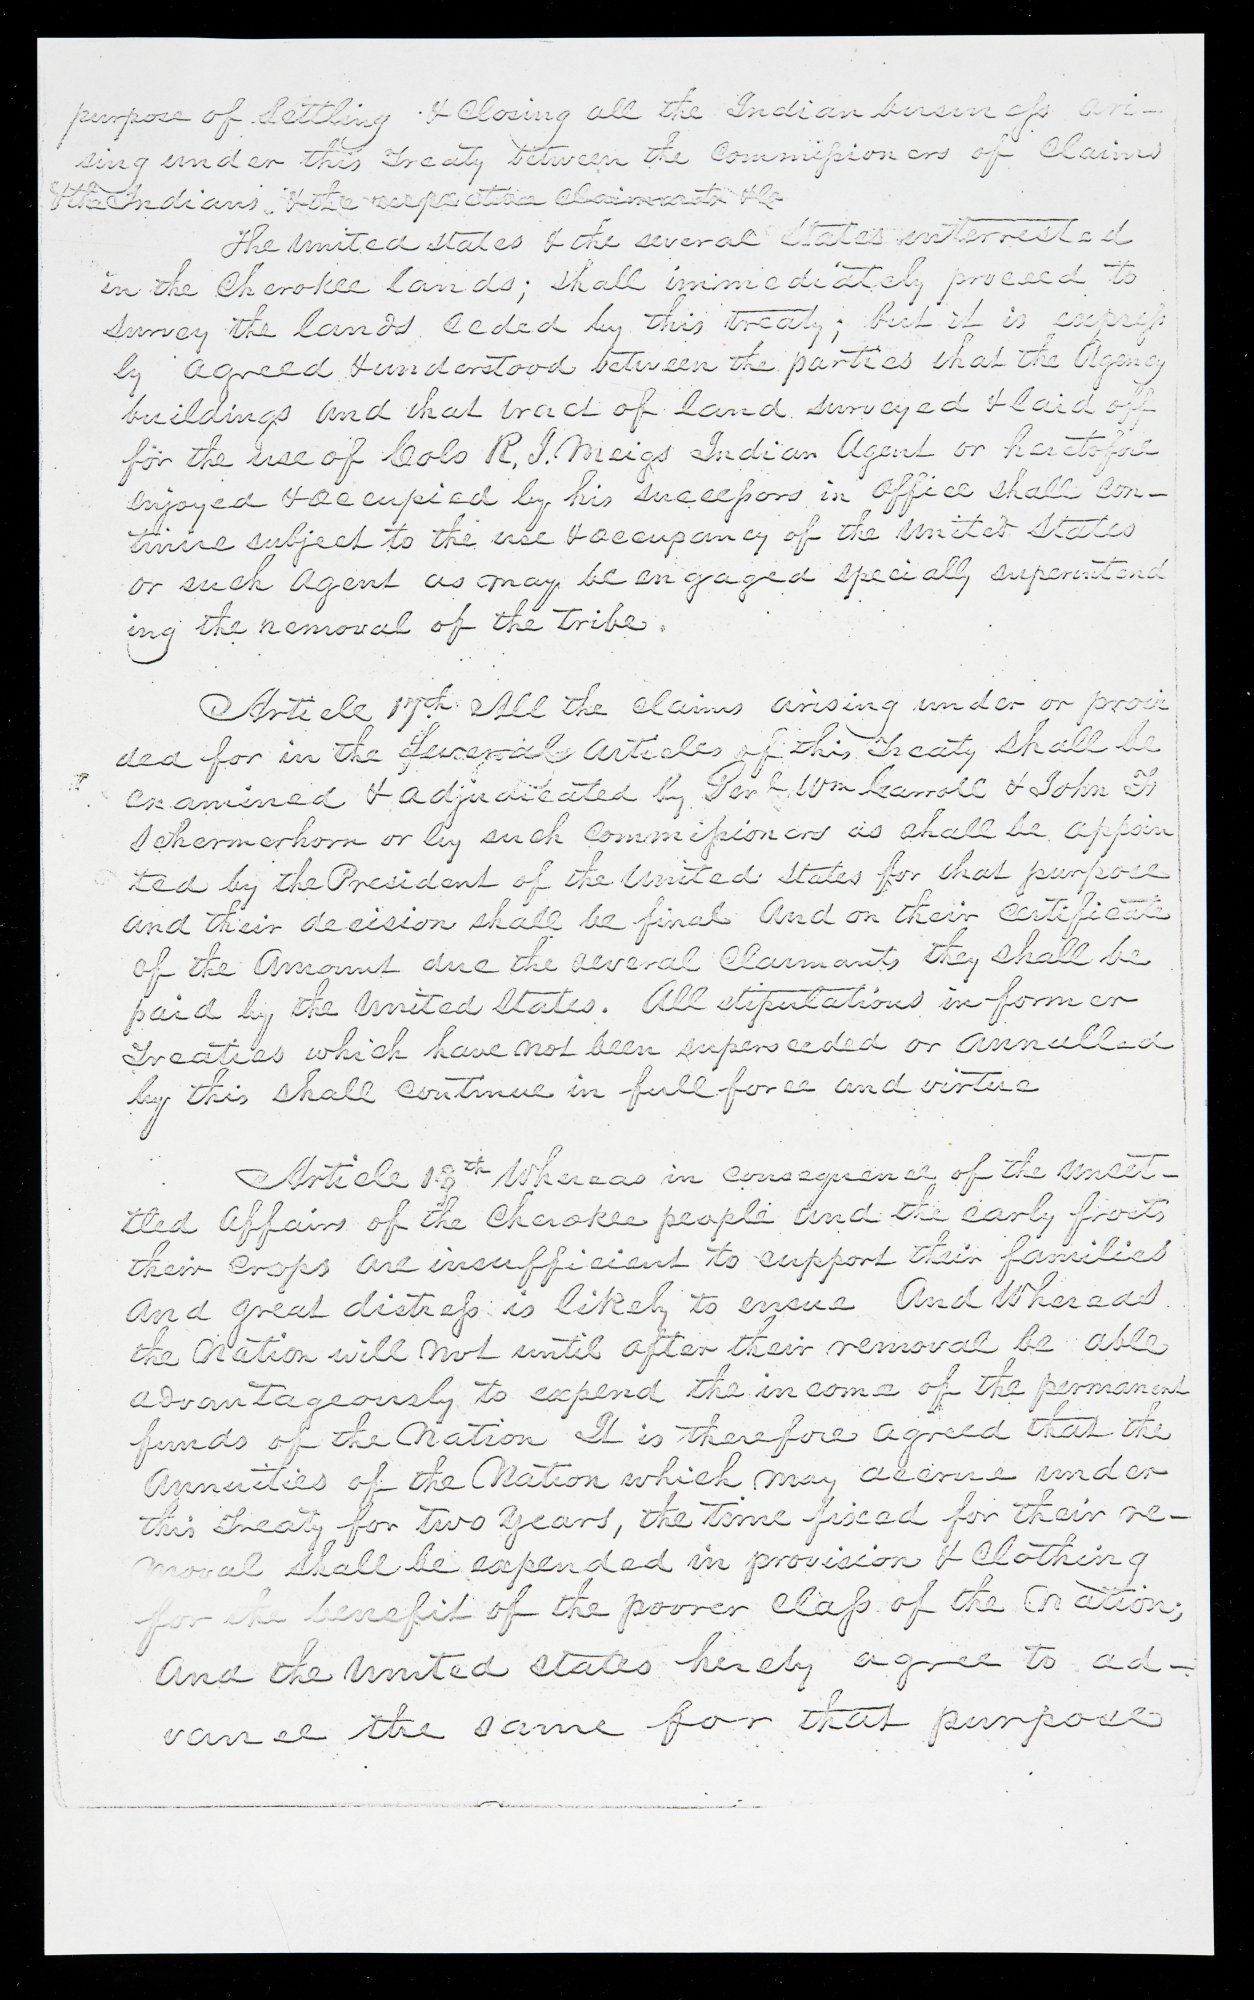 purpose of Settling & Closing all the Indian business ari-
sing under this Treaty between the Commissioners of Claims
& the Indians, & the respective Claimants &c
The United States & the several States interrested
in the Cherokee lands; shall immediately proceed to
survey the lands ceded by this treaty; but it is express
ly agreed & understood between the parties that the Agency
buildings and that tract of land surveyed & laid off
for the use of Colo R. J. Meigs Indian Agent or heretofore
enjoyed & occupied by his successors in office shall con-
tinue subject to the use & occupancy of the United States
or such Agent as may be engaged specially superintend
ing the removal of the tribe.
Article 17th All the claims arising under or provi
ded for in the several articles of this Treaty shall be
examined & adjudicated by Wm Carroll & John F
Schermerhorn or by such Commissioners as shall be appoin
ted by the President of the United States for that purpose
and their decision shall be final And on their certificate
of the Amount due the several Claimants they shall be
paid by the United States. All stipulations in former
Treaties which have not been superseeded or annulled
by this shall continue in full force and virtue
Article 18th Whereas in consequence of the unset-
tled affairs of the Cherokee people and the early frosts
their crops are insufficient to support their families
and great distress is likely to ensue And Whereas
the Nation will not until after their removal be able
advantageously to expend the income of the permanent
funds of the Nation It is therefore agreed that the
Annuities of the Nation which may accrue under
this Treaty for two years, the time fixed for their re-
moval shall be expended in provision & Clothing
for the benefit of the poorer class of the Nation;
And the United States hereby agree to ad-
vance the same for that purpose